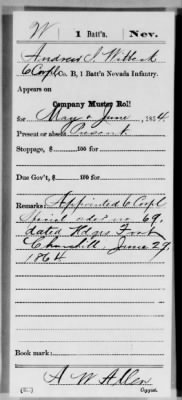 W 1 Batt'n. Nev.
Andrew J. Wittock
6 Corpl, Co. B, 1 Batt'n Nevada Infantry.
Appears on
Company Muster Roll
for May & June, 1864
Present or absent Present
Stoppage, $ 100 for
Due Gov't, $ 100 for
Remarks: Appointed 6 Corpl
Special order no 69,
dated Hdqrs Fort
Churchill, June 29,
1864
Book mark:
A W Allen
Copyist.